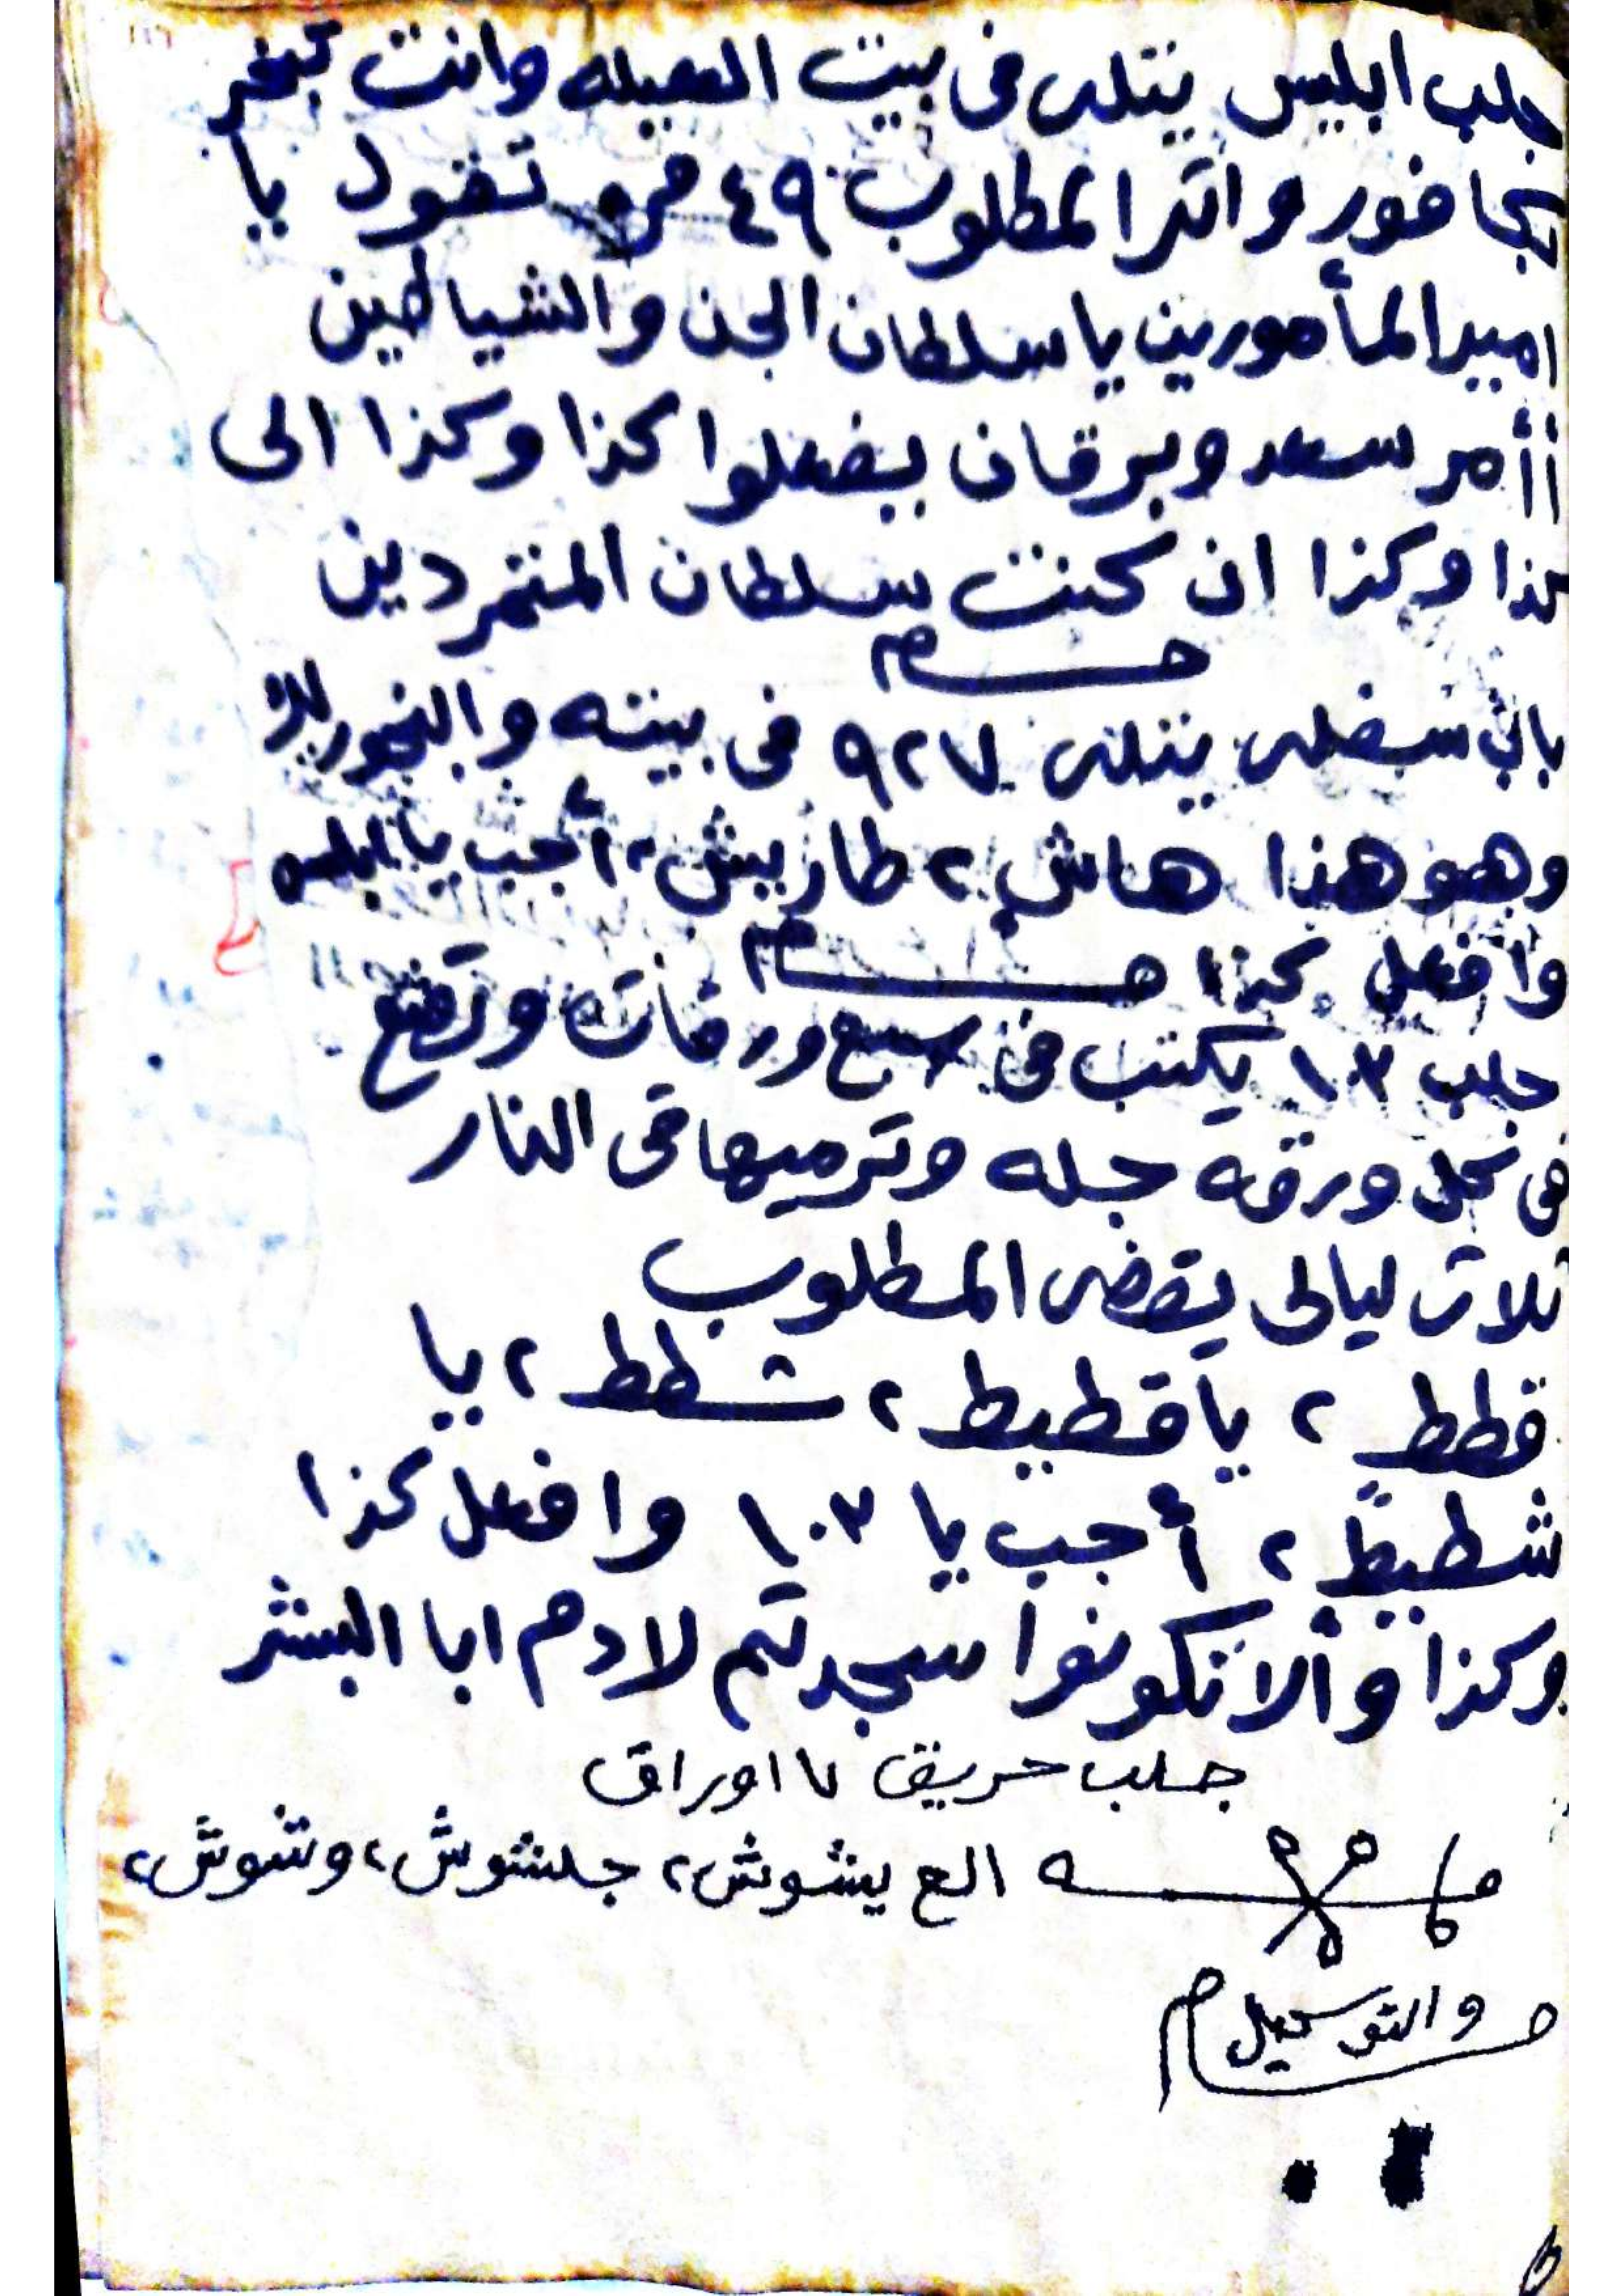 جلب ابليس يتلى فى بيت وانت تبخر
واتر المطلوب ٤٩ مره تقول يا
امير المأمورين يا سلطان الجن والشياطين
أأمر سعد وبرقان بفعلوا كذا وكذا الى
كذا وكذا ان كنت سلطان المتمردين
باب سفلى يتلى ٩٢٧ فى بيته والبخور
وهو هذا هاش ٢ طاريش ٢ أجب يا ابليس
وافعل كذا
جلب ١٠٣ يكتب فى سبع ورقات وتضع
فى كل ورقه جله وترميها فى النار
ثلاث ليالى يقضى المطلوب
قطط ٢ يا قطيط ٢ شطط ٢ يا
شطيط ٢ أجب يا ١٠٣ وافعل كذا
وكذا وألا تكونوا سجدتم لادم ابا البشر
جلب حريق ٧ اوراق
الع يشوش ٢ جلشوش ٢ وشوش ٢
والتوكيل